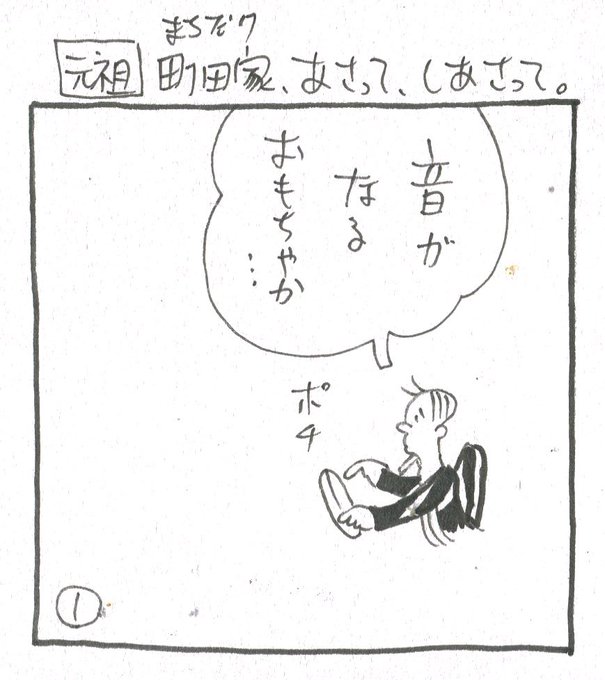 まちだけ
元祖 町田家、あさって、しあさって。
音が
なる
おもちゃか
…
ポチ
①